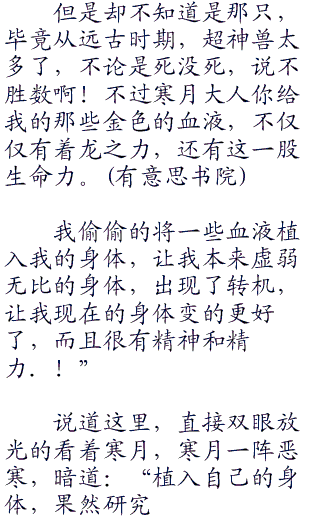 但是却不知道是那只，
毕竟从远古时期，超神兽太
多了，不论是死没死，说不
胜数啊！不过寒月大人你给
我的那些金色的血液，不仅
仅有着龙之力，还有这一股
生命力。(有意思书院)
我偷偷的将一些血液植
入我的身体，让我本来虚弱
无比的身体，出现了转机，
让我现在的身体变的更好
了，而且很有精神和精
力．！”
说道这里，直接双眼放
光的看着寒月，寒月一阵恶
寒，暗道：“植入自己的身
体，果然研究